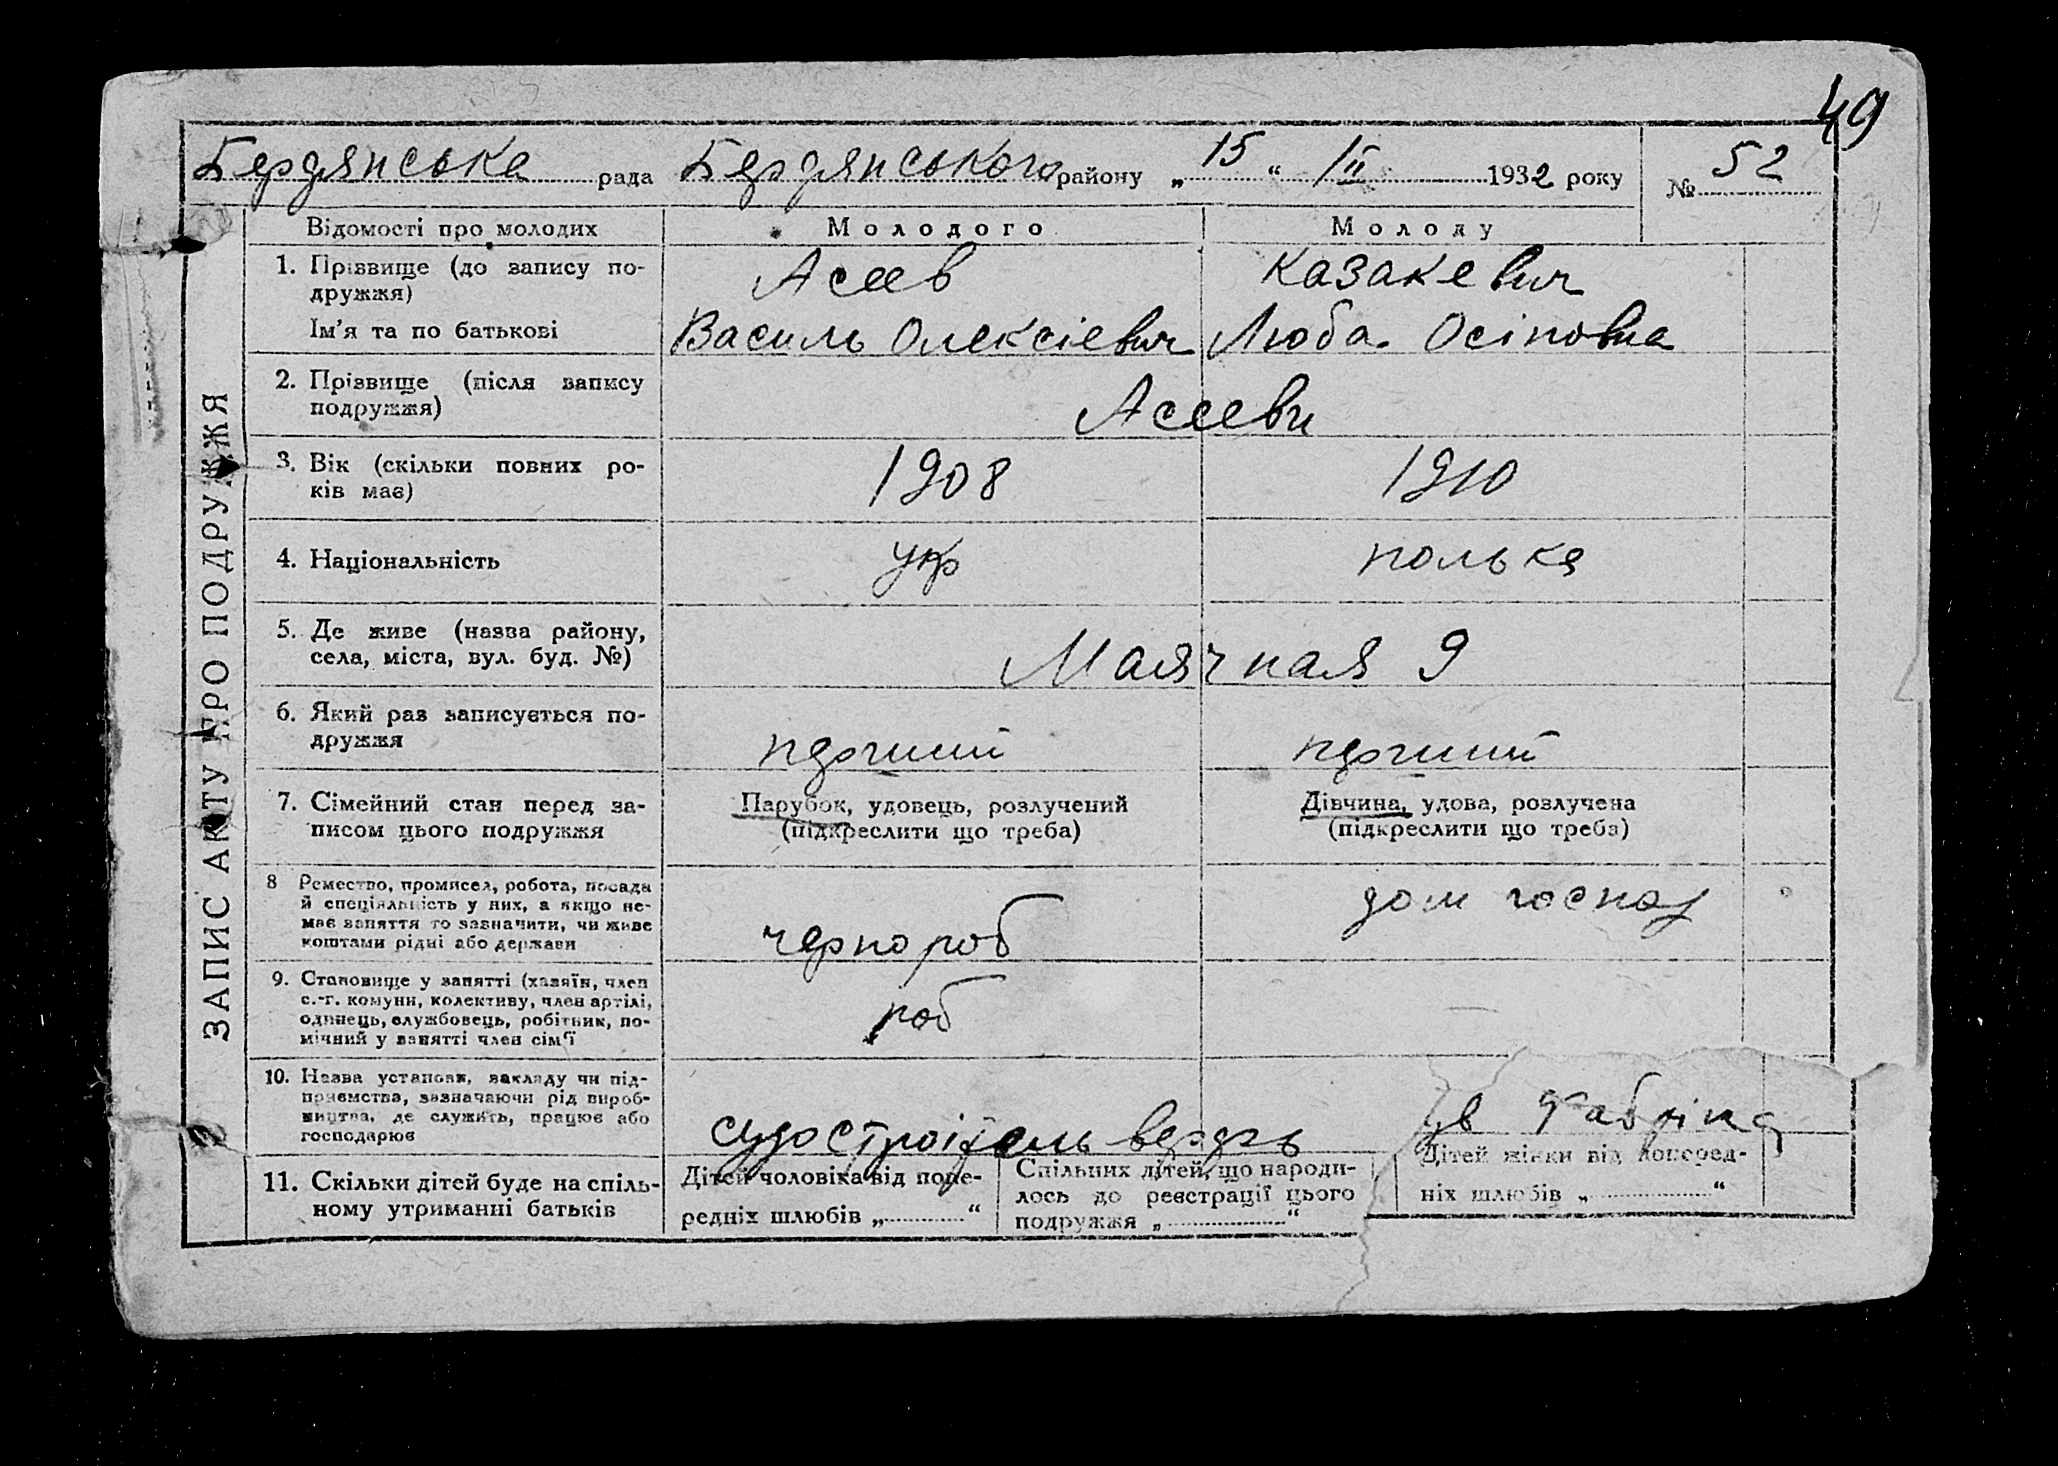 49
Бердянська рада Бердянського району „ 15 “ II 1932 року № 52
ЗАПИС АКТУ ПРО ПОДРУЖЖЯ
Відомості про молодих Молодого Молоду
1. Прізвище (до запису по-
дружжя) Асеев Казакевич
Ім'я та по батькові Василь Олексієвич Люба. Осіповна
2. Прізвище (після запису
подружжя) Асееви
3. Вік (скільки повних ро-
ків має) 1908 1910
4. Національність укр полька
5. Де живе (назва району,
села, міста, вул. буд. №) Маячная 9
6. Який раз записується по-
дружжя перший перший
7. Сімейний стан перед за- Парубок, удовець, розлучений Дівчина, удова, розлучена
писом цього подружжя (підкреслити що треба) (підкреслити що треба)
8 Ремество, промисел, робота, посада
й спеціяльність у них, а якщо не-
має заняття то зазначити, чи живе
коштами рідні або держави чернороб дом господ
9. Становище у занятті (хазяїн, член
с.-г. комуни, колективу, член артілі,
одинець, службовець, робітник, по-
мічний у занятті член сім'ї роб —
10. Назва установи, закладу чи під-
приємства, зазначаючи рід вироб-
ництва, де служить, працює або
господарює судостроітель
11. Скільки дітей буде на спіль-
ному утриманні батьків
Дітей чоловіка від попе-
редніх шлюбів „ “
Спільних дітей, що народи-
лось до реєстрації цього
подружжя „ “
Дітей жінки від поперед-
ніх шлюбів „ “